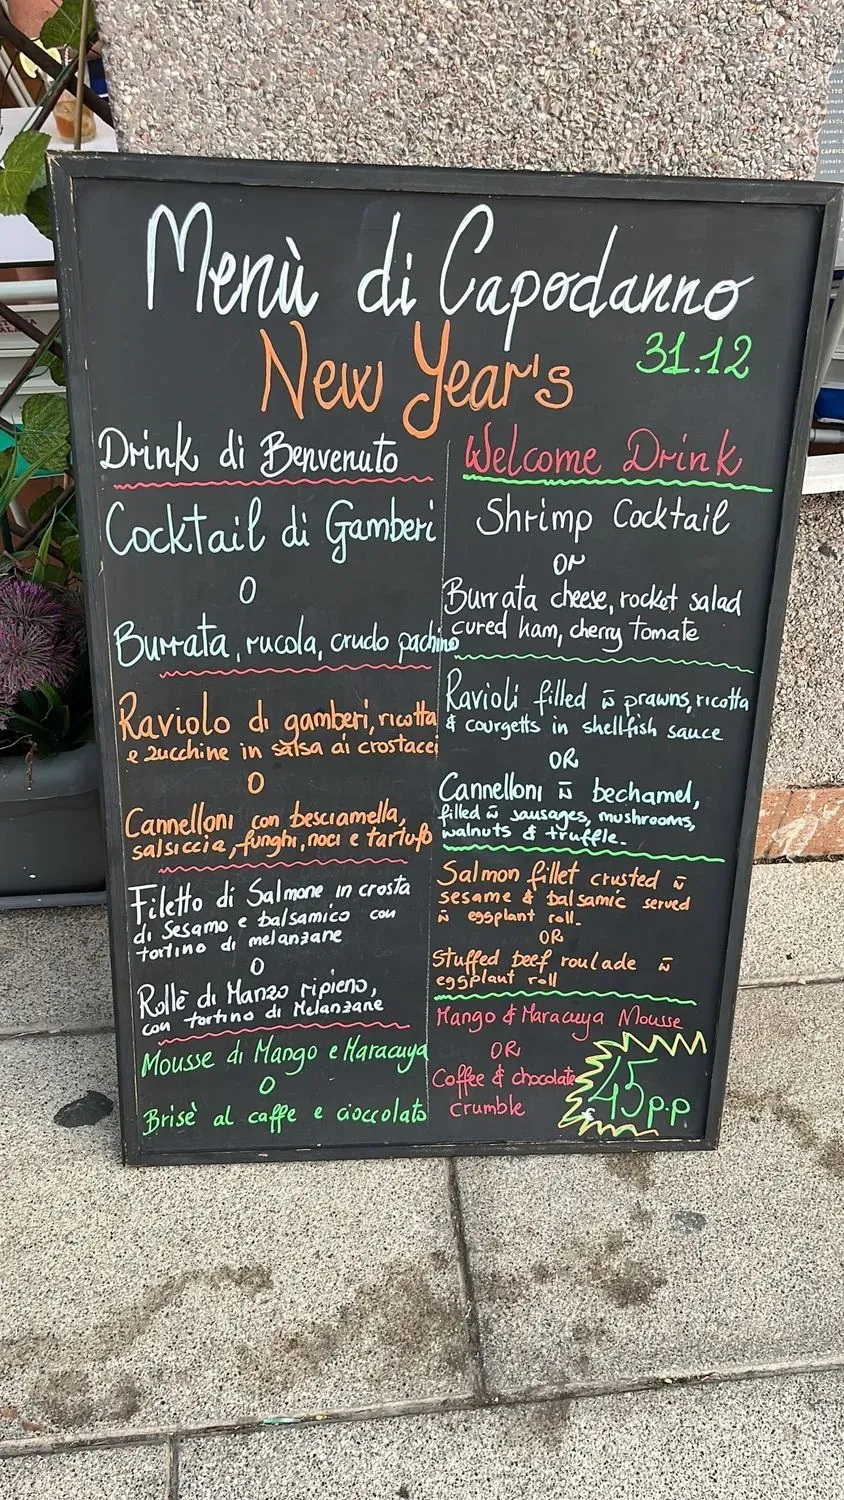 Menù di Capodanno
New Year's
31.12
Drink di Benvenuto
Cocktail di Gamberi
O
Burrata, rucola, crudo pachino
Raviolo di gamberi, ricotta
e zucchine in salsa ai crostacei
O
Cannelloni con besciamella,
salsiccia, funghi, noci e tartufo
Filetto di Salmone in crosta
di Sesamo e balsamico con
tortino di melanzane
O
Rollè di Manzo ripieno,
con tortino di Melanzane
Mousse di Mango e Maracuya
O
Brisè al caffe e cioccolato
Welcome Drink
Shrimp Cocktail
OR
Burrata cheese, rocket salad
cured ham, cherry tomate
Ravioli filled w̄ prawns, ricotta
& courgetts in shellfish sauce
OR
Cannelloni w̄ bechamel,
filled w̄ sausages, mushrooms,
walnuts & truffle.
Salmon fillet crusted w̄
sesame & balsamic served
w̄ eggplant roll.
OR
Stuffed beef roulade w̄
eggplant roll
Mango & Maracuya Mousse
OR
Coffee & chocolate
crumble
€45 p.p